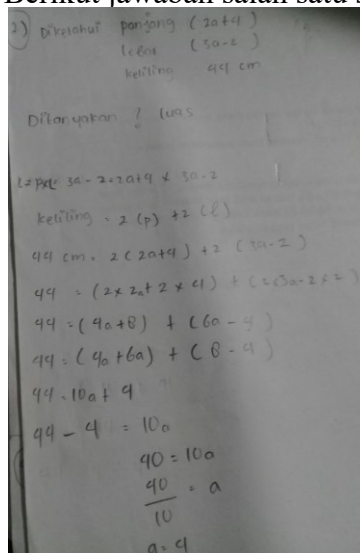 2) Diketahui panjang (2a+4)
lebar (3a-2)
keliling 44 cm
Ditanyakan ? luas
L=pxl= 3a-2=2a+4 x 3a-2
keliling = 2 (p) +2 (l)
44 cm = 2(2a+4) +2 (3a-2)
44 = (2x2a+2x4) + (2x3a-2x2)
44 = (4a+8) + (6a-4)
44 = (4a+6a) + (8-4)
44 = 10a+4
44-4 = 10a
40 = 10a
40
10 = a
a=4